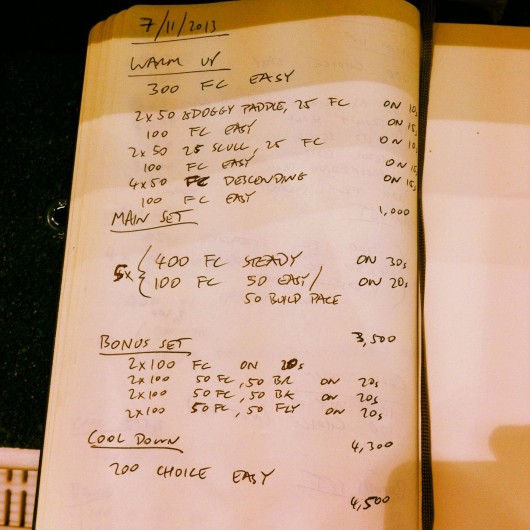 7/11/2013
WARM UP
300 FC EASY
2x50 DOGGY PADDLE, 25 FC ON 10s
100 FC EASY ON 15s
2x50 25 SCULL, 25 FC ON 10s
100 FC EASY ON 15s
4x50 FC DESCENDING ON 15s
100 FC EASY
MAIN SET 1,000
5x { 400 FC STEADY ON 30s
100 FC 50 EASY/ ON 20s
50 BUILD PACE
BONUS SET 3,500
2x100 FC ON 20s
2x100 50 FC, 50 BR ON 20s
2x100 50 FC, 50 BK ON 20s
2x100 50 FC, 50 FLY ON 20s
COOL DOWN 4,300
200 CHOICE EASY
4,500